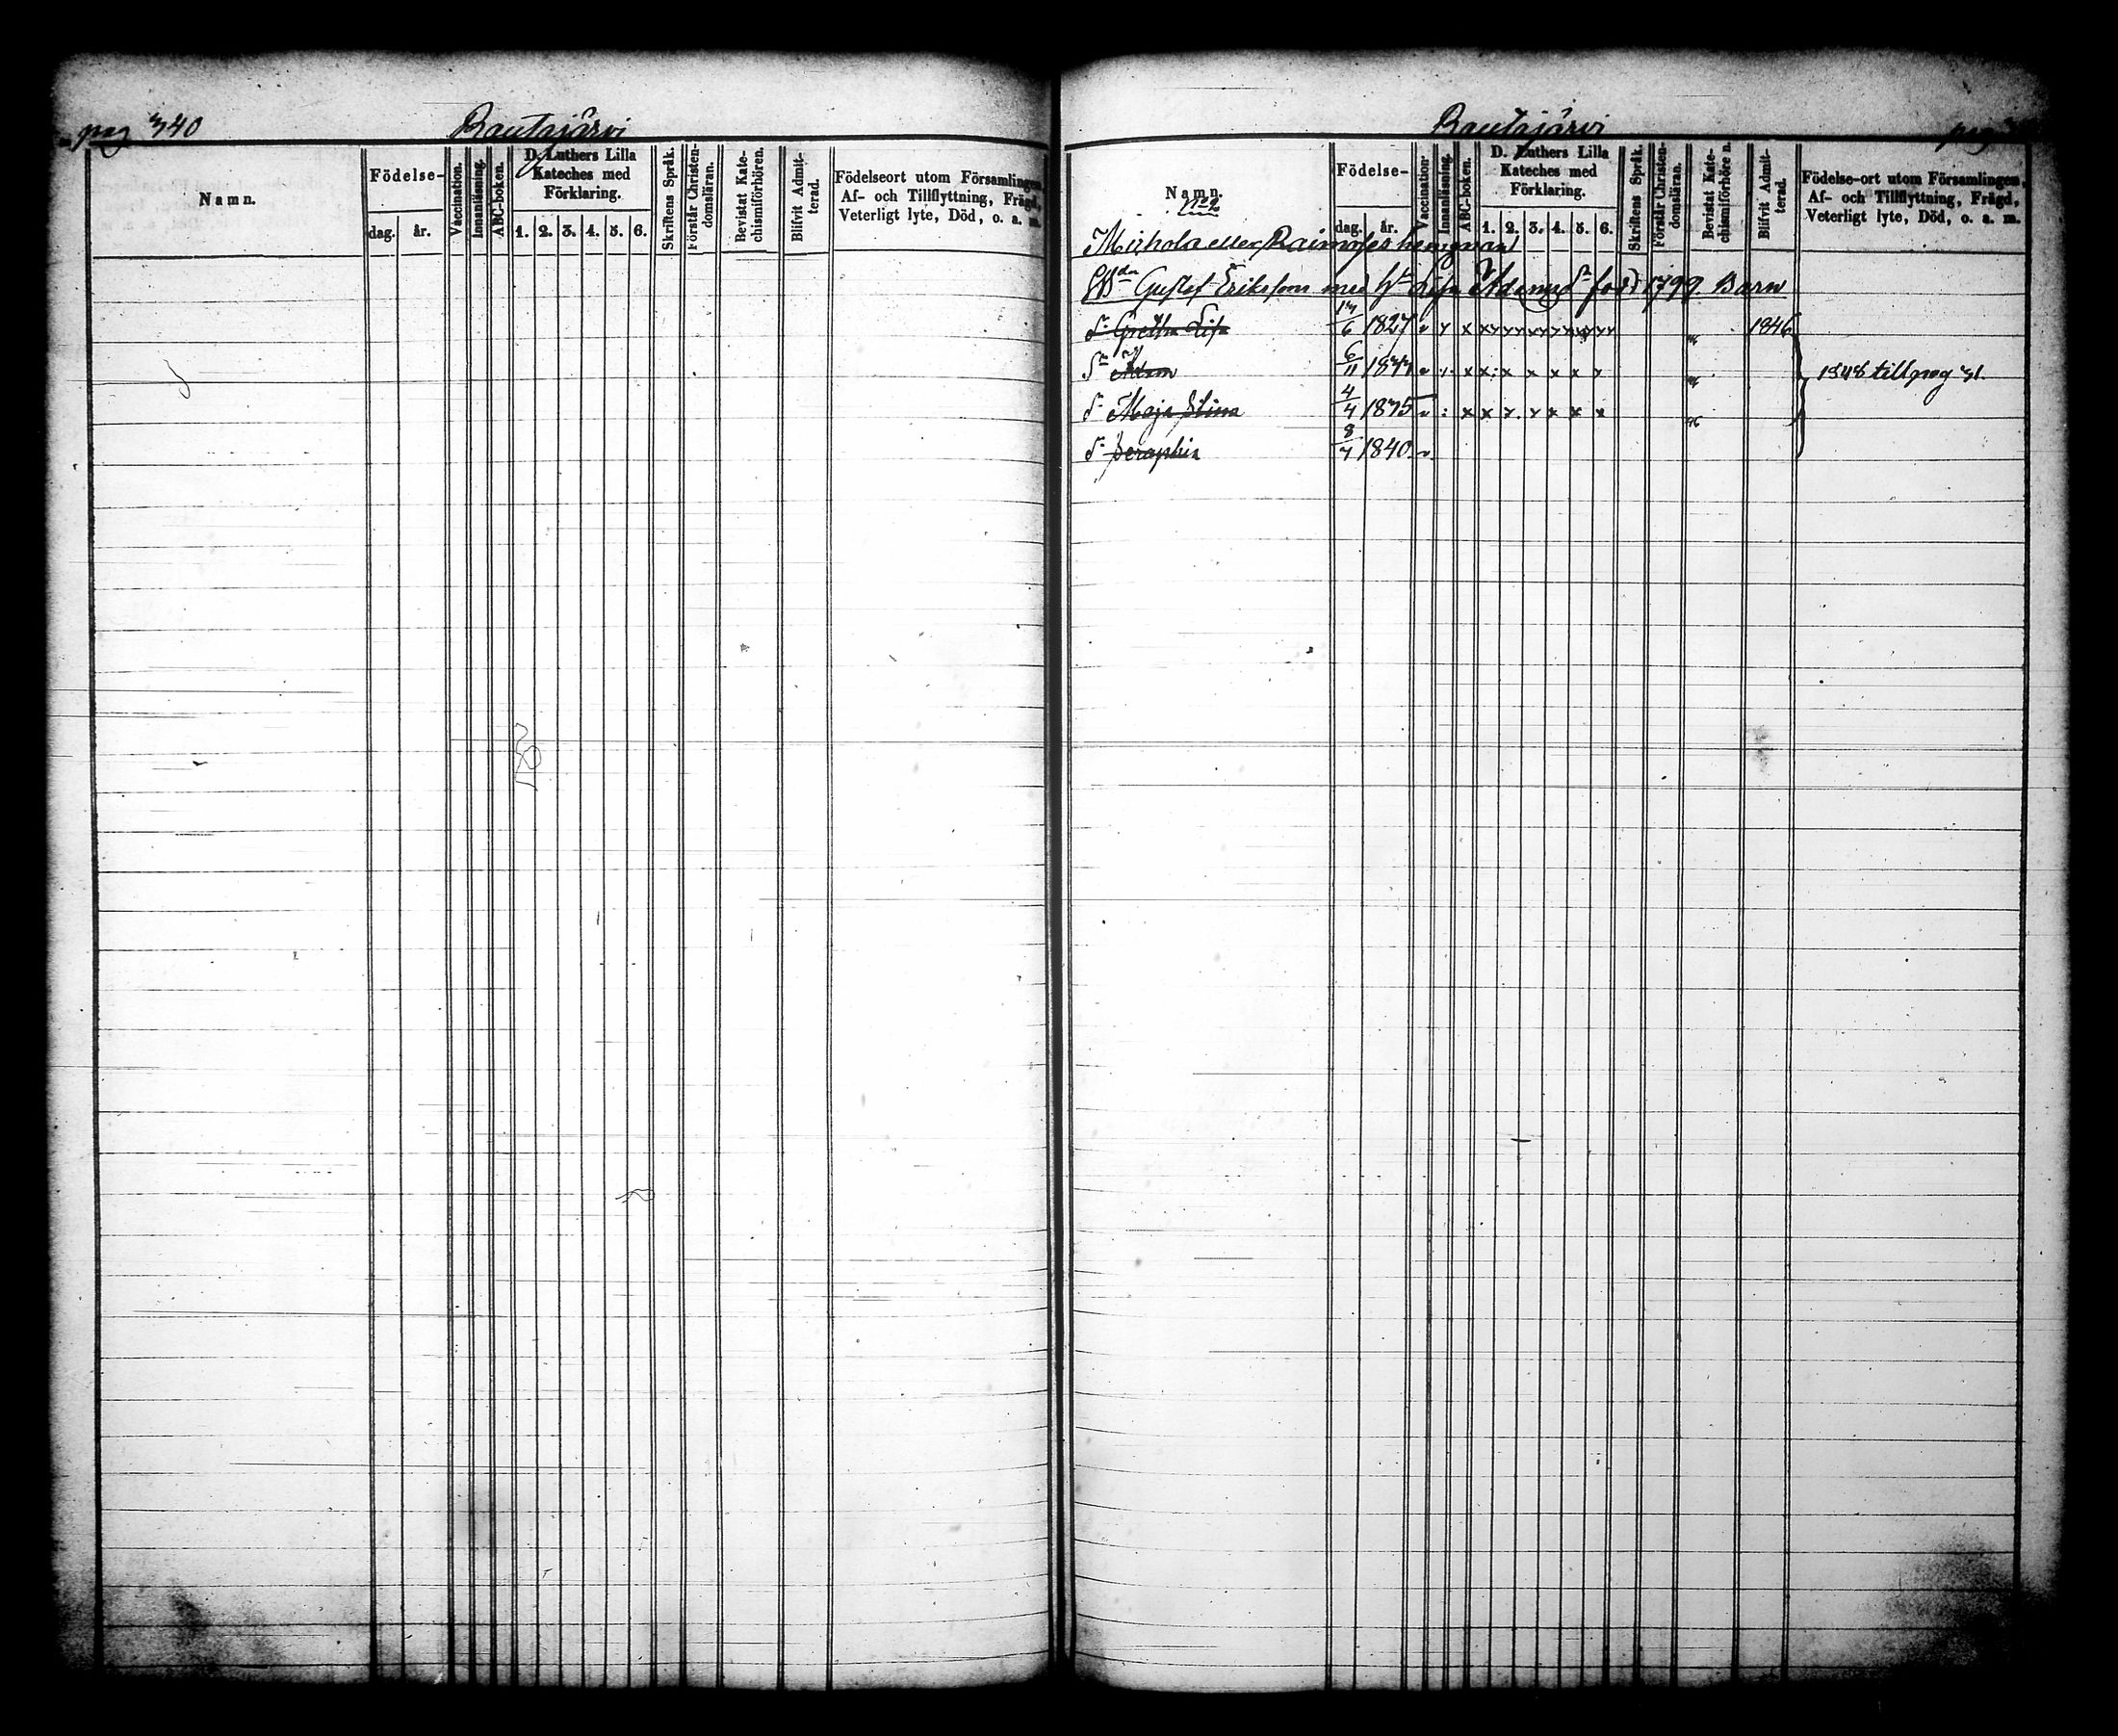 pag 340
Rautajärvi
Namn.
Födelse-
dag. år.
Vaccination.
Innanläsning.
ABC-boken.
D. Luthers Lilla
Kateches med
Förklaring.
1. 2. 3. 4. 5. 6.
Skriftens Språk.
Förstår Christen-
domsläran.
Bevistat Kate-
chismiförhören.
Blifvit Admit-
terad.
Födelseort utom Församlingen,
Af- och Tillflyttning, Frägd,
Veterligt lyte, Död, o. a. m.
Rautajärvi
pag
Namn.
Födelse-
dag. år.
Vaccination.
Innanläsning.
ABC-boken.
D. Luthers Lilla
Kateches med
Förklaring.
1. 2. 3. 4. 5. 6.
Skriftens Språk.
Förstår Christen-
domsläran.
Bevistat Kate-
chismiförhören.
Blifvit Admit-
terad.
Födelse-ort utom Församlingen,
Af- och Tillflyttning, Frägd,
Veterligt lyte, Död, o. a. m.
eller
Gustaf Eriksson med Lisa född 1799 Barn
Gretha Lisa 6 1827 1846
Adam 6/11
Maja Stina 4/4 1835
Seraphia 8 1840
1848 till pag